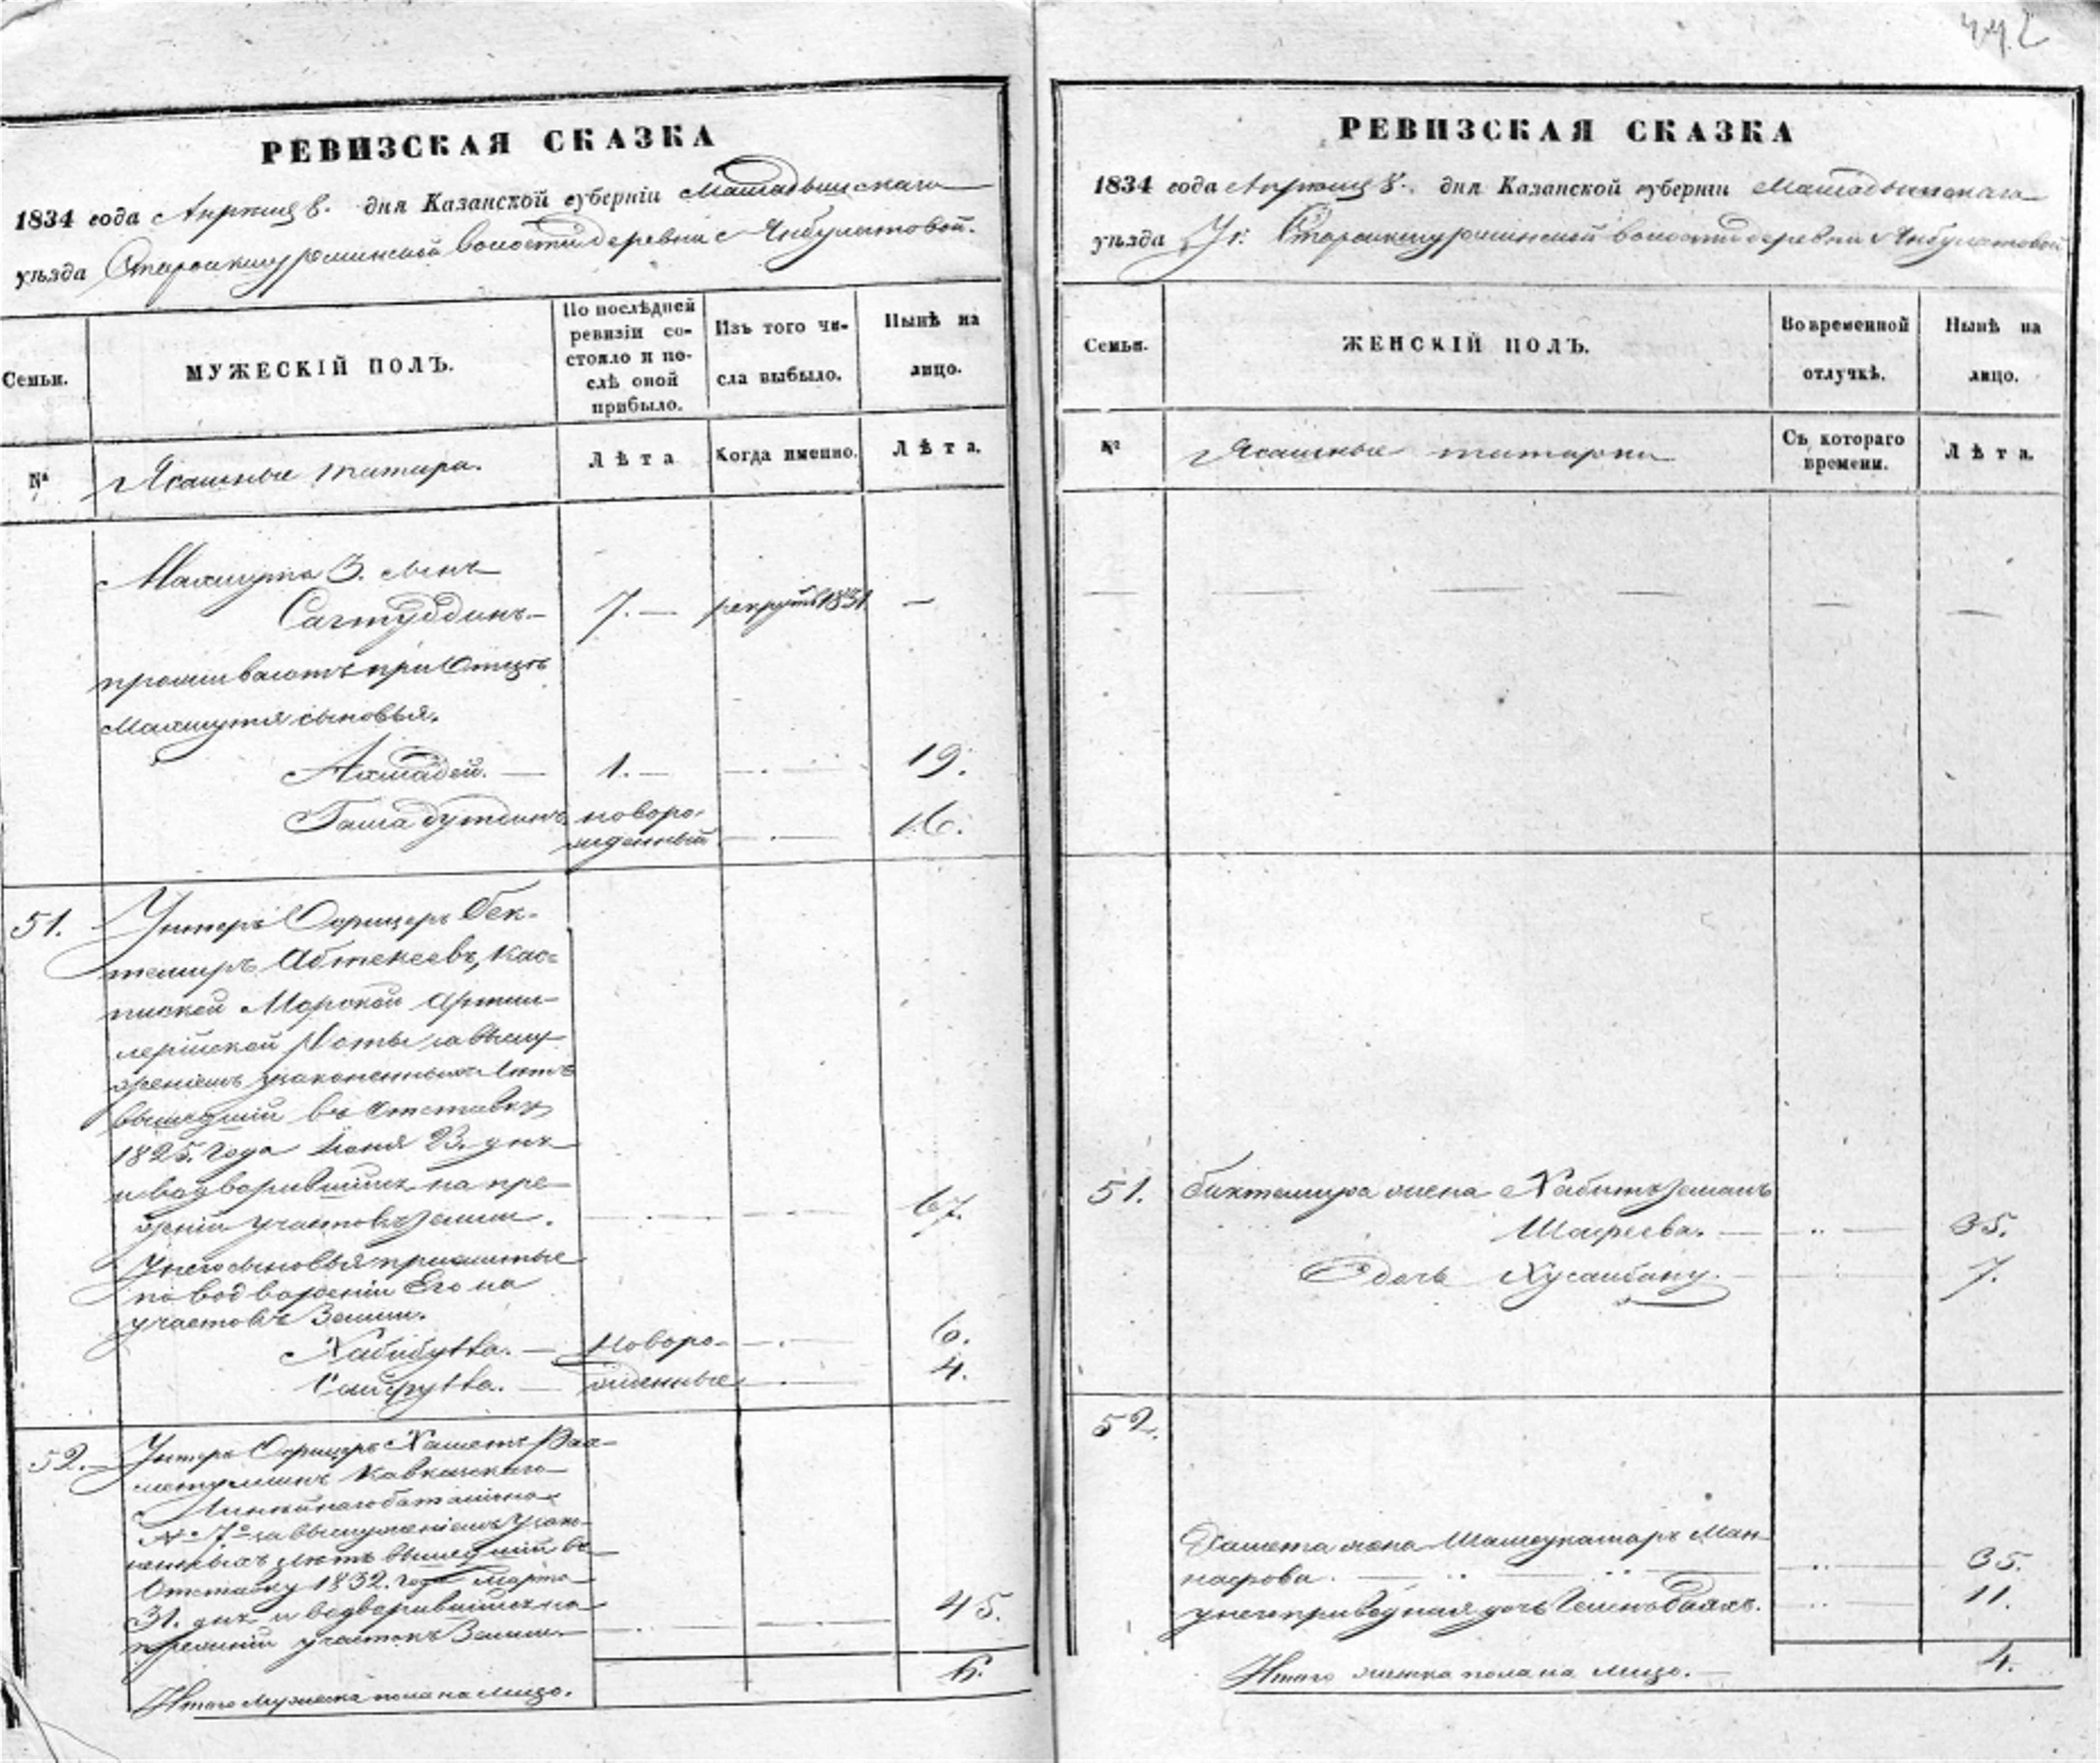 442
РЕВИЗСКАЯ СКАЗКА
1834 года Апреля 8. дня Казанской губерніи Мамадышскаго
уѣзда Старокишурминской волости деревни Янбулатовой.
Семьи.
МУЖЕСКІЙ ПОЛЪ.
По послѣдней ревизіи со-
стояло и по-
слѣ оной
прибыло.
Изъ того чи-
сла выбыло.
Нынѣ на
лицо.
№
Ясашные татара.
Лѣта
Когда именно.
Лѣта.
Махмута 3. сынъ
Сагтуддинъ 7. рекрутъ 1831 —
проживаютъ при Отцѣ
Махмутя сыновья.
Ахмадей. 1. 19.
новоро-
жденный 16.
51. Унтеръ Офицеръ Бек-
темиръ Абтекеевъ, Кас-
пиской Морской Артил-
лерійской Роты за выслу-
женіемъ узаконенныхъ лѣтъ
вышедшій въ отставку
1825. года Іюня 23. дня
и водворившійся на пре-
жній участокъ земли. 67.
У него сыновья прижитые
по водвореніи Его на
участокъ Земли.
Хабибулла. новоро- 6.
Сайфулла. жденные 4.
52. Унтеръ Офицеръ Хаметъ
Кавказскаго
Линейнаго баталіона
№ 7º за выслуженіемъ узако-
ненныхъ лѣтъ вышедшій въ
Отставку 1832. года марта
31. дня и водворившійся на
прежній участокъ Земли. 45.
Итого мужеска пола на лицо. 6.
РЕВИЗСКАЯ СКАЗКА
1834 года Апреля 8. дня Казанской губерніи Мамадышскаго
уѣзда Старокишурминской волости деревни Янбулатовой
Семьи.
ЖЕНСКІЙ ПОЛЪ.
Во временной
отлучкѣ.
Нынѣ на
лицо.
№
Ясашные татарки
Съ котораго
времени.
Лѣта.
51. Биктемира жена Хабитъземалъ
Шафеева. 35.
дочь Хусаибану. 7.
52.
Хамета жена Ман-
нафова. 35.
у него приводная дочь 11.
Итого женска пола на лицо. 4.